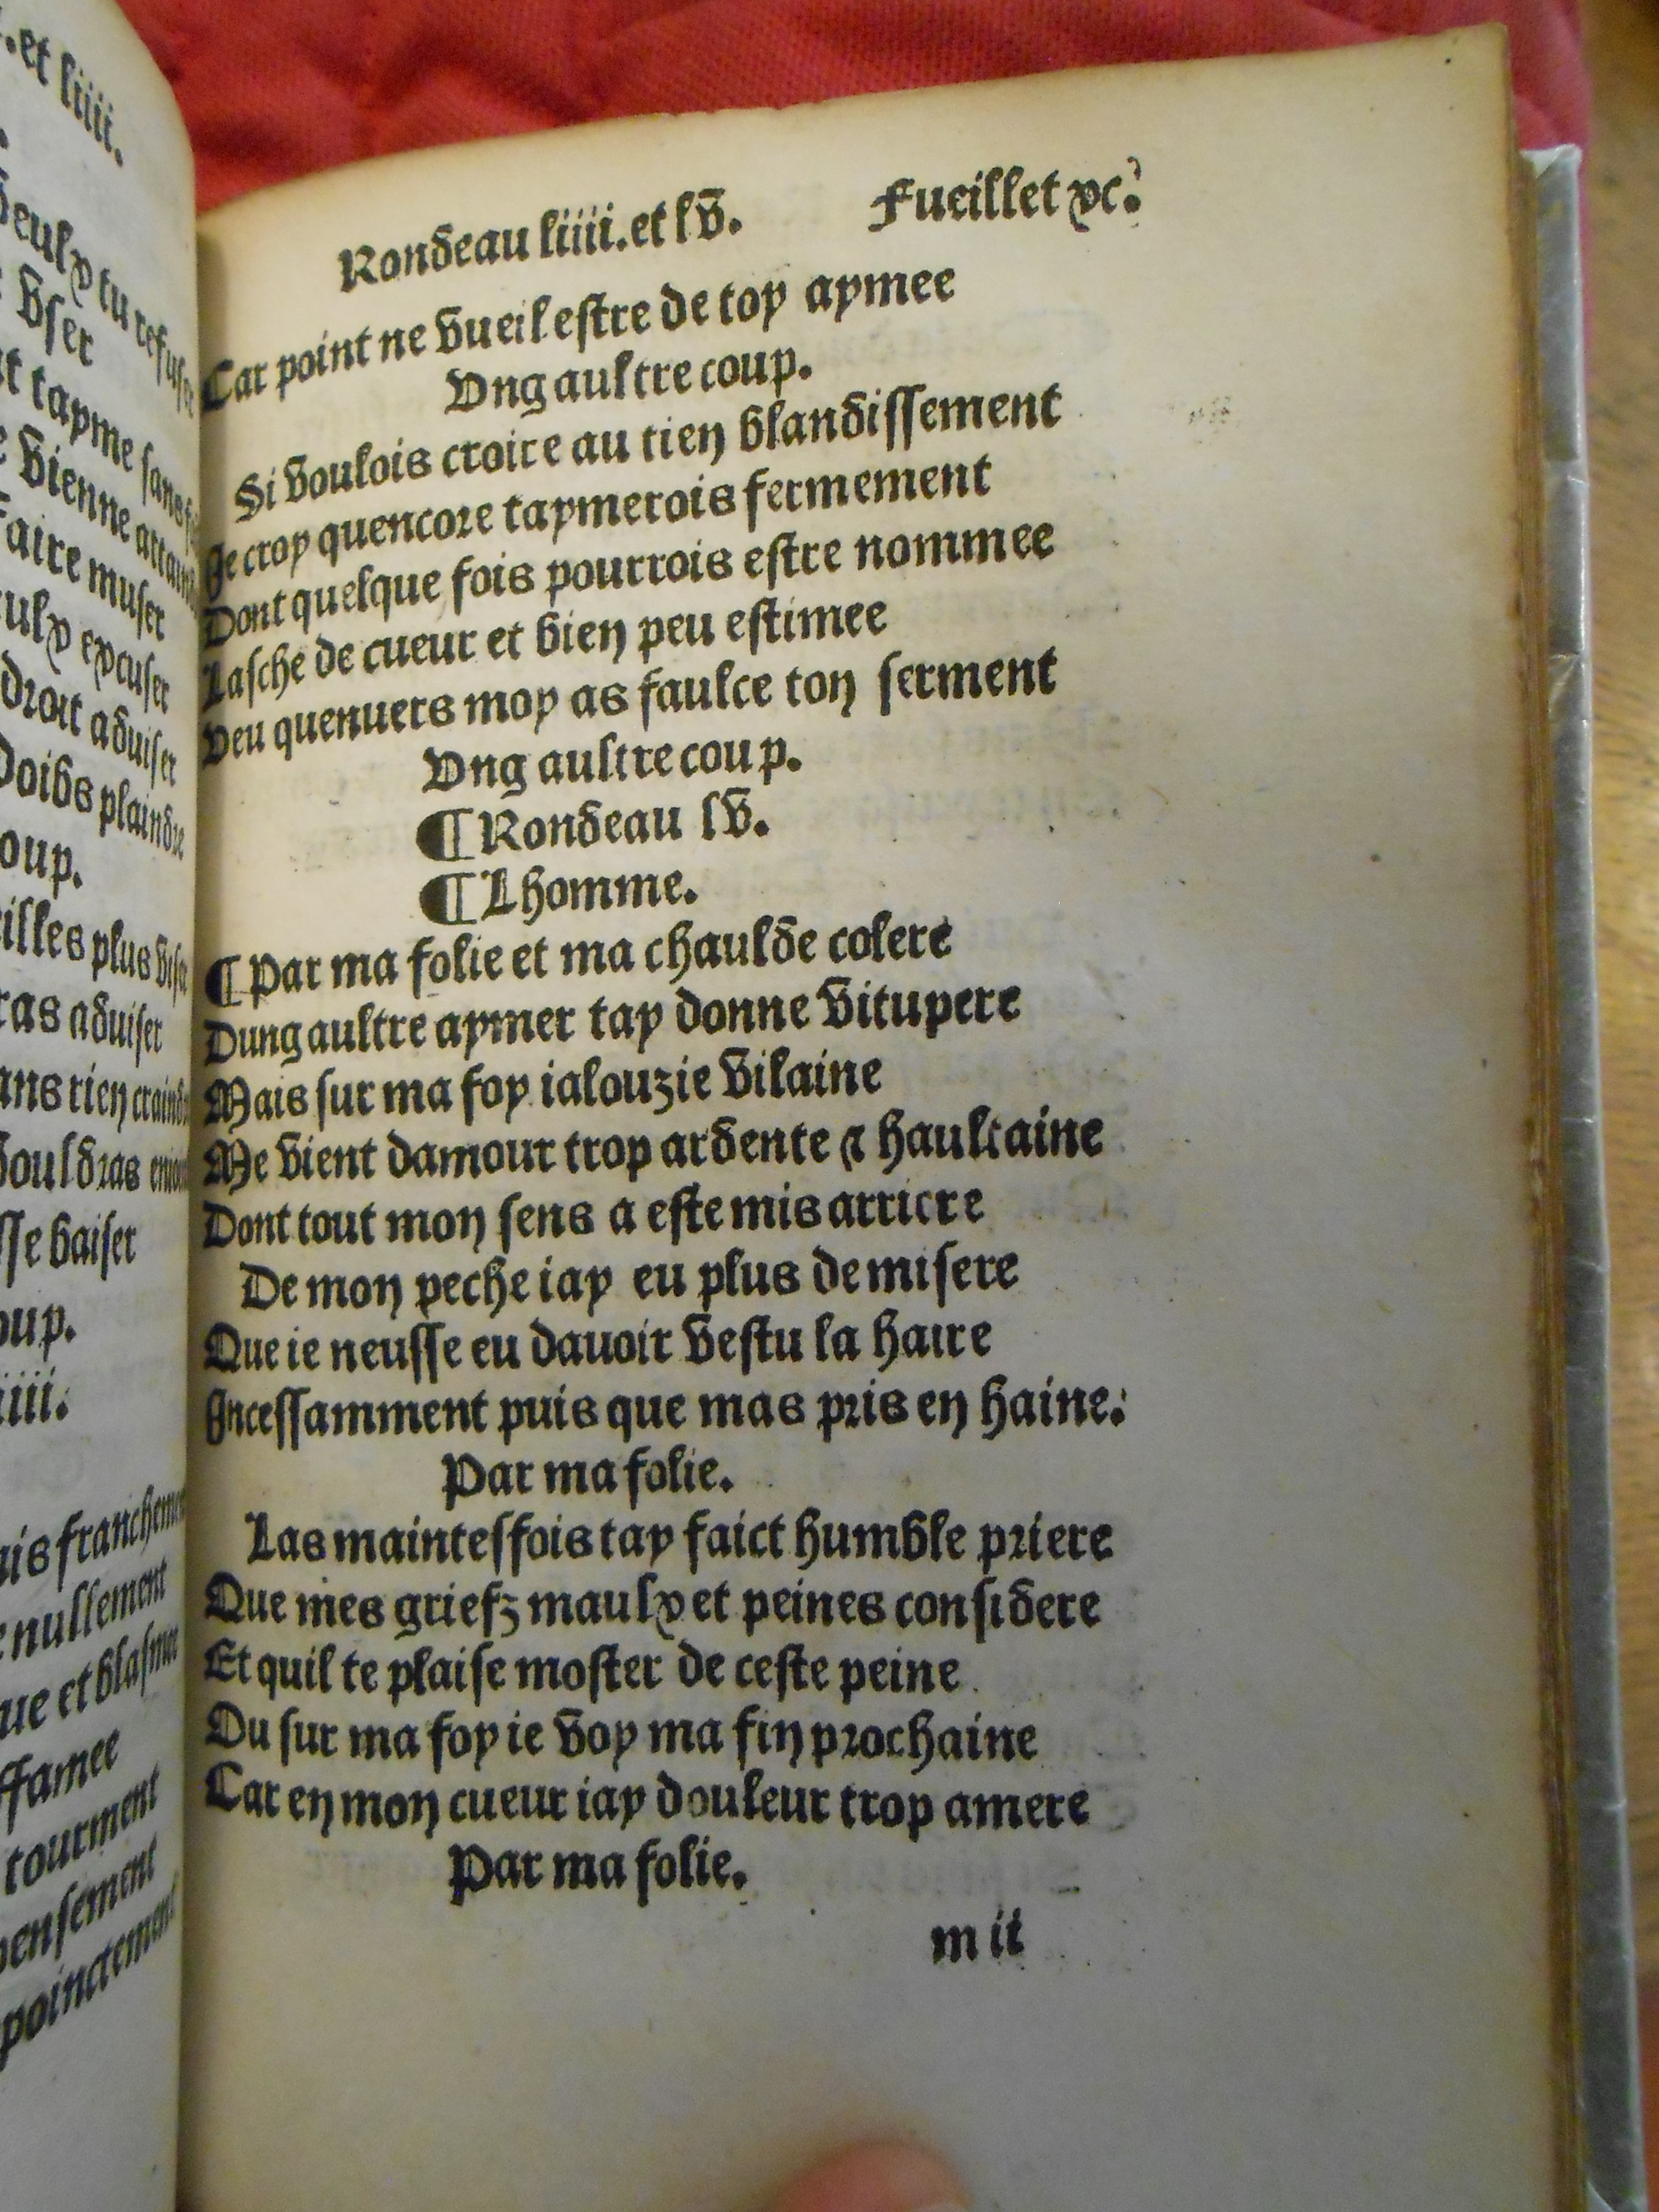 .et liiii.
tu refuse
vser
tayme sans
vienne
faire muser
excuser
droit aduiser
doibs plaindre
oup.
illes plus
ras aduiser
ans rien
vouldras
sse baiser
oup.
iiii.
ais franchement
nullement
ue et blasmee
ffamee
tourment
pensement
poinctement
Rondeau liiii.et lv. Fueillet xc.
Car point ne vueil estre de toy aymee
Vng aultre coup.
Si voulois croire au tien blandissement
Je croy quencore taymerois fermement
Dont quelque fois pourrois estre nommee
Lasche de cueur et bien peu estimee
Veu quenuers moy as faulce ton serment
Vng aultre coup.
¶ Rondeau lv.
¶ Lhomme.
¶ Par ma folie et ma chaulde colere
Dung aultre aymer tay donne vitupere
Mais sur ma foy ialouzie vilaine
Me vient damour trop ardente ⁊ haultaine
Dont tout mon sens a este mis arriere
De mon peche iay eu plus de misere
Que ie neusse eu dauoir vestu la haire
Incessamment puis que mas pris en haine.
Par ma folie.
Las maintesfois tay faict humble priere
Que mes griefz maulx et peines considere
Et quil te plaise moster de ceste peine
Ou sur ma foy ie voy ma fin prochaine
Car en mon cueur iay douleur trop amere
Par ma folie.
m ii